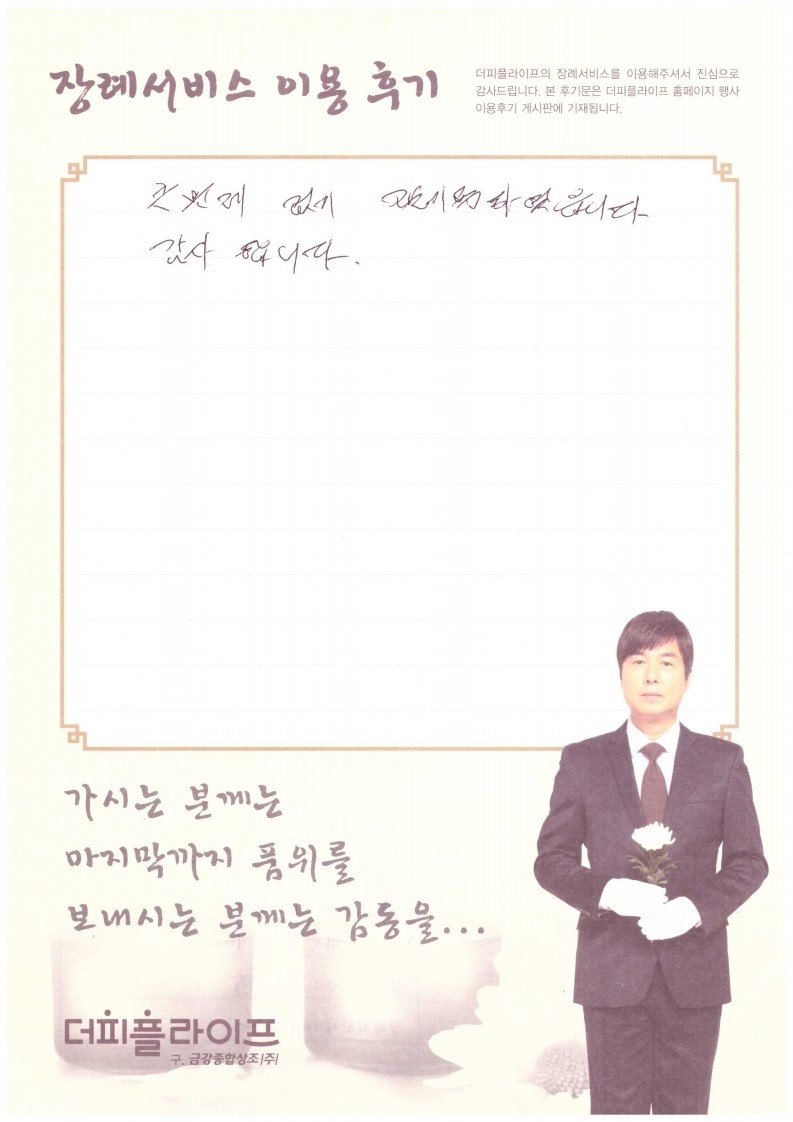 장례서비스 이용 후기
더피플라이프의 장례서비스를 이용해주셔서 진심으로
감사드립니다. 본 후기문은 더피플라이프 홈페이지 행사
이용후기 게시판에 기재됩니다.
큰 문제 없이 잘 마무리 하였습니다
감사 합니다.
가시는 분께는
마지막까지 품위를
보내시는 분께는 감동을...
더피플라이프
구. 금강종합상조(주)